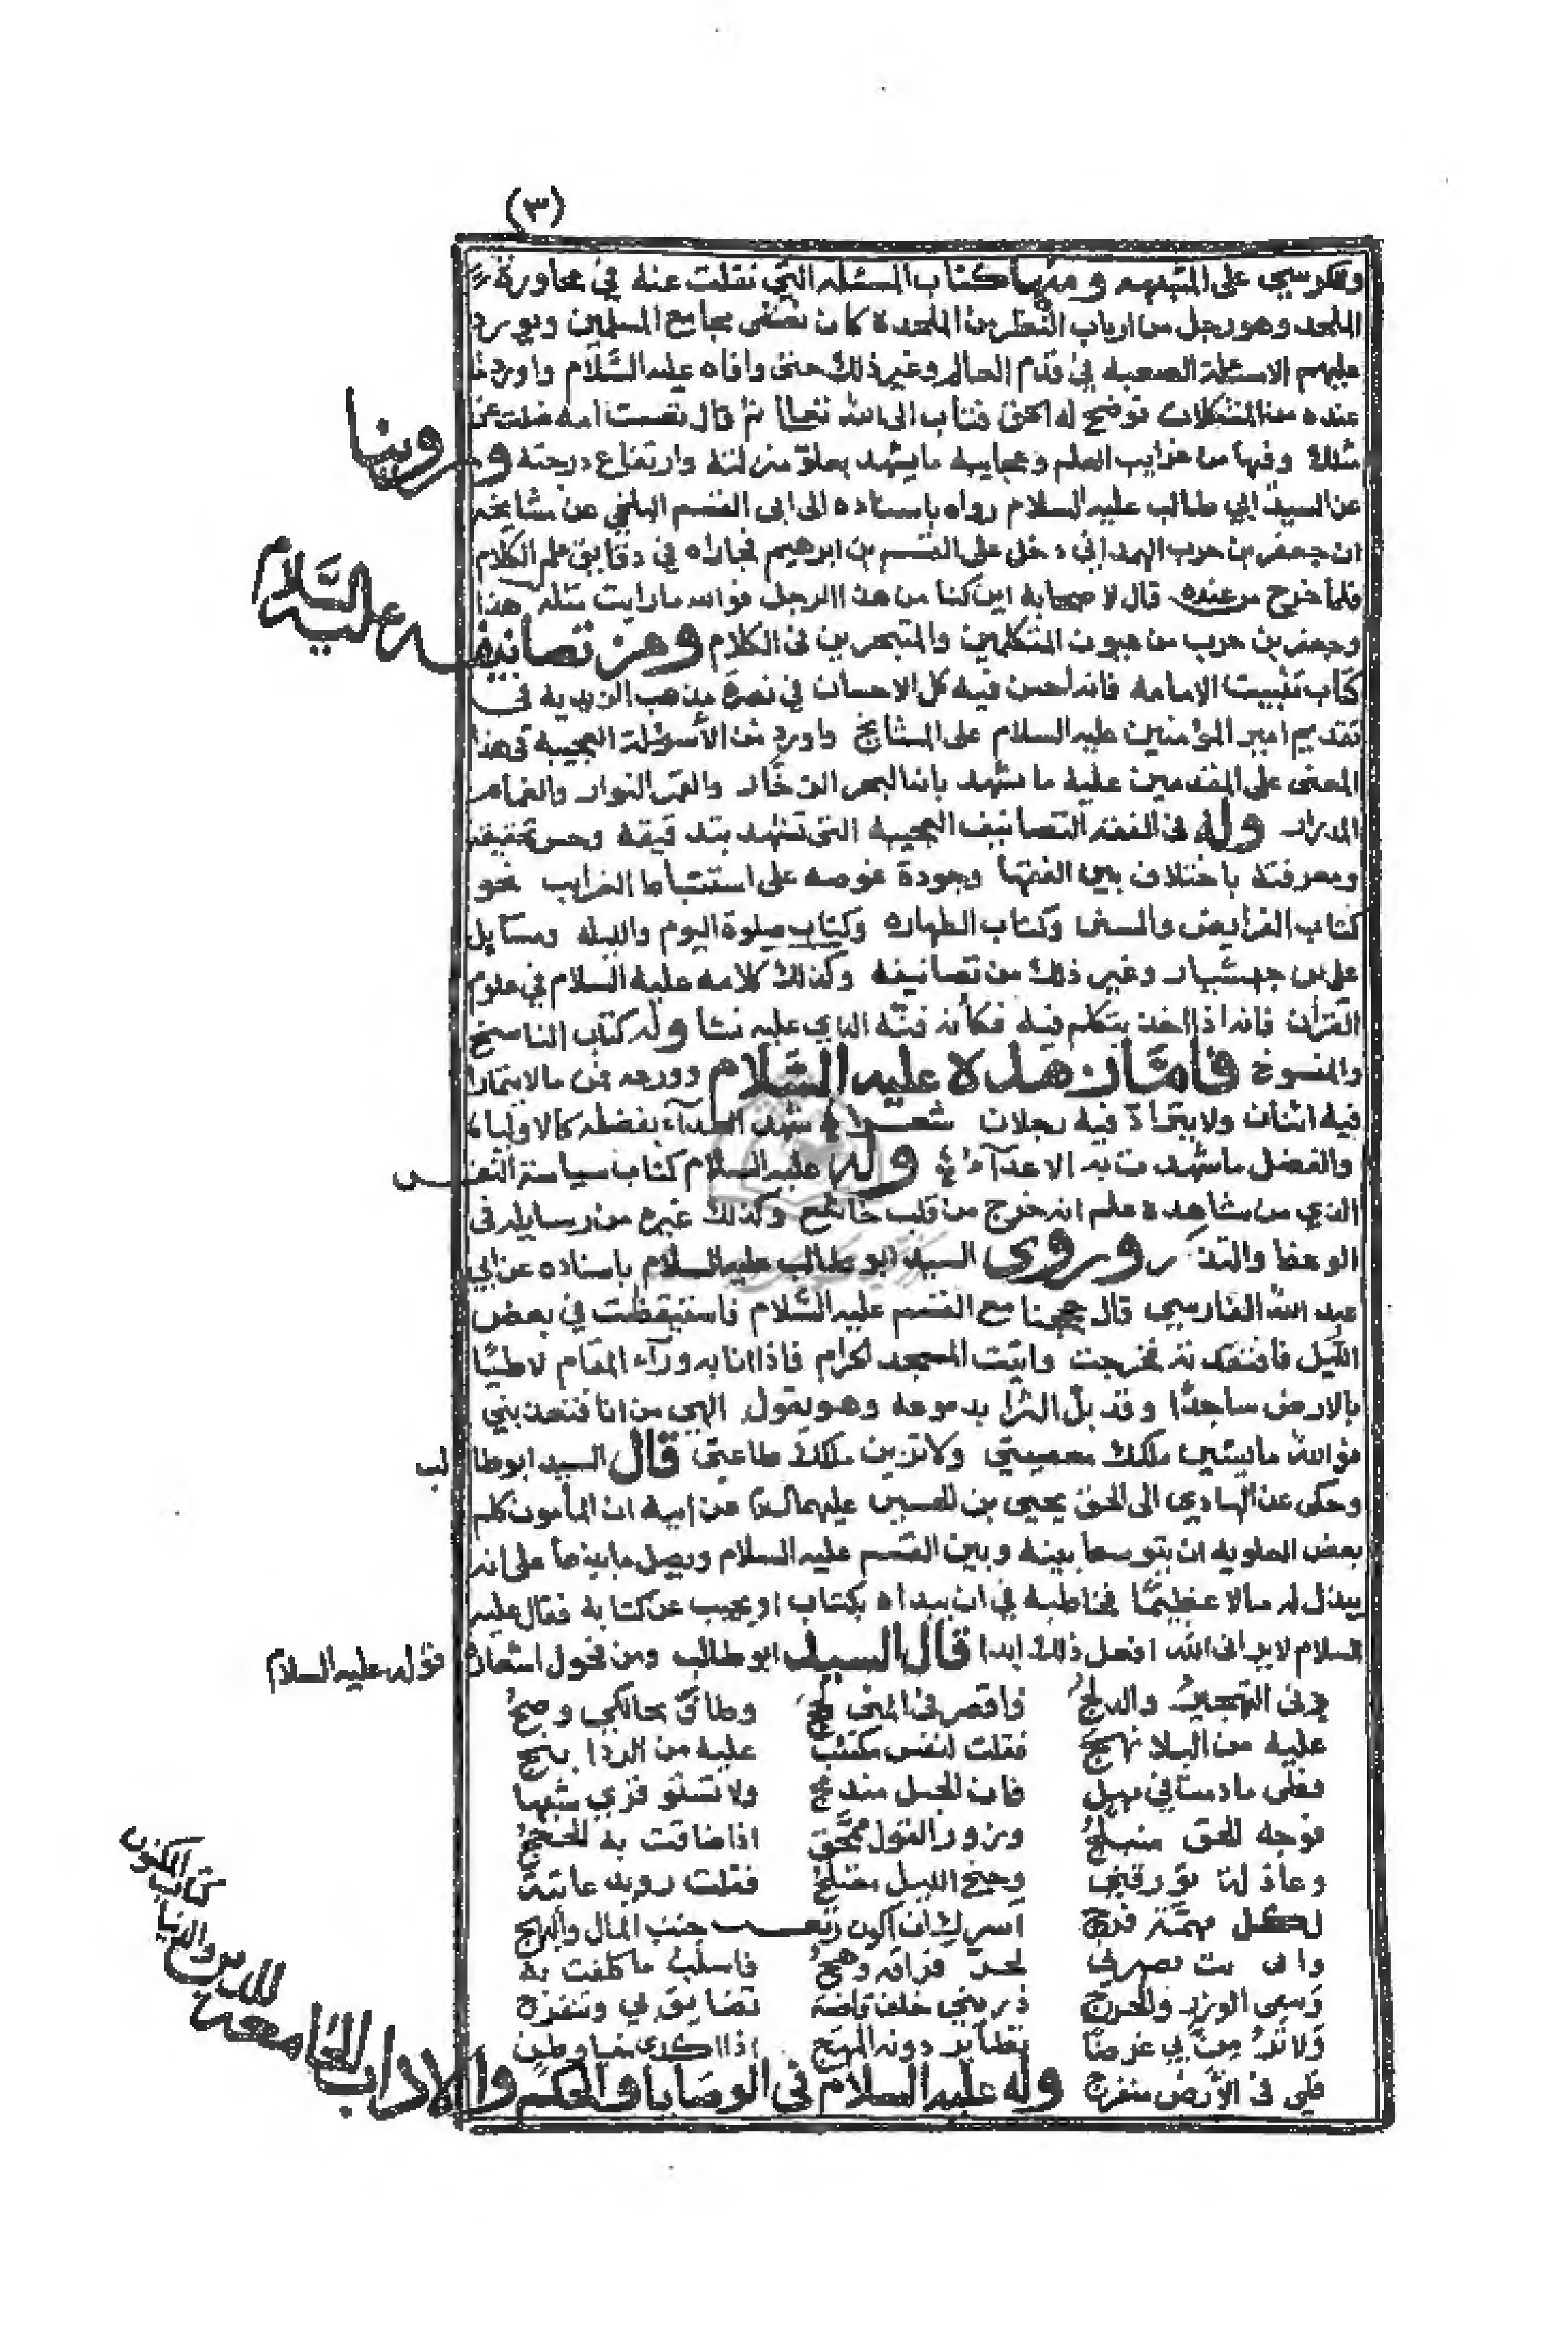 (٣)
على المشبهه ومنها كتاب المسئله التي نقلت عنه في محاورة
الملحد وهو رجل من ارباب النظر من الملحدة كان يغشى مجامع المسلمين ويورد
عليهم الاسئلة الصعبه في قدم العالم وغير ذلك حتى وافاه عليه السّلام واورد ما
عنده من المشكلات فوضح له الحق فتاب الى الله تعالى ثم قال تعست امه ضلت عن
مثلك وفيها من غرايب العلم وعجايبه ما يشهد بعلو منزلته وارتفاع درجته وروينا
عن السيد ابي طالب عليه السلام رواه باسناده الى ابي القسم البلخي عن مشايخه
ان جعفر بن حرب الهمداني دخل على القسم بن ابرهيم فجاراه في دقايق علم الكلام
فلما خرج من عنده قال لاصحابه اين كنا من هذا الرجل فوالله ما رايت مثله هذا
وجعفر بن حرب من عيون المتكلمين والمتبحرين في الكلام ومن تصانيفه عليه السّلام
كتاب تثبيت الامامه فانه احسن فيه كل الاحسان في نصرة مذهب الزيديه في
تقديم امير المؤمنين عليه السلام على المشايخ واورد من الأسئولة العجيبه في هذا
المعنى على المقدمين عليه ما يشهد بانه البحر الزخّار والقمر النوار والغمام
المدرار وله في الفقه التصانيف العجيبه التي تشهد بتدقيقه وحسن تحقيقه
ومعرفته باختلاف بين الفقها وجودة غوصه على استنباط الغرايب نحو
كتاب الفرايض والسنن وكتاب الطهاره وكتاب صلوة اليوم والليله ومسايل
علي بن جهشيار وغير ذلك من تصانيفه وكذلك كلامه عليه السلام في علوم
القرأن فانه اذا اخذ يتكلم فيه فكأنه فنّه الذي عليه نشا وله كتاب الناسخ
والمنسوخ فامّا زهده عليه السّلام وورعه فمن ما لا يتمارا
فيه اثنان ولا يتمرّا فيه رجلان شعر شهد العدآء بفضله كالاوليا
والفضل ما شهدت به الاعدآء وله عليه السلام كتاب سياسة النفس
الذي من شاهده علم انه خرج من قلب خاشع وكذلك غيره من رسايله في
الوعظ والتذ وروى السيد ابو طالب عليه السلام باسناده عن ابي
عبد الله الفارسي قال حججنا مع القسم عليه السّلام فاستيقظت في بعض
اللّيل فافتقدته فخرجت واتيت المسجد الحرام فاذا انا به ورآء المقام لاطيًا
بالارض ساجدًا وقد بلّ الثرا بدموعه وهو يقول الهي من انا فتعذبني
فوالله ما يشين ملكك معصيتي ولا تزين ملكك طاعتي قال السيد ابو طالب
وحكى عن الهادي الى الحق يحيى بن الحسين عليهما السلام عن ابيه ان المأمون كلم
بعض العلويه ان يتوسط بينه وبين القسم عليه السلام ويصل ما بينهما على انه
يبذل له مالا عظيمًا فخاطبه في ان يبداه بكتاب او يجيب عن كتابه فقال عليه
السلام لا يراني الله افعل ذلك ابدا قال السيد ابو طالب ومن فحول اشعاره قوله عليه السلام
والدلجُ فاقصر في المنى
عليه من البلا نهج فقلت لنفس مكتئب عليه من الردا
فان الحبل مندمج
فوجه الحق منبلجُ وزور القول ممّحق اذا ضاقت به الحججُ
وعاذلة تؤرقني وجنح الليل معتلج فقلت رويد عاتبة
لكل مهمّة فرج اسرك ان اكون رتعت حيث المال والبهج
واني بت يصهرني لحد فراقه وهجُ فاسلب ما كلفت به
ويبقى الوزر والحرج ذريني خلف قاصية تضايق بي وتنفرج
ولا ترم بي غرضًا تطاير دونه المهج
في الأرض منفرج وله عليه السلام في الوصايا والحكم والاداب الجامعه للدين والدنيا كتاب المكنون